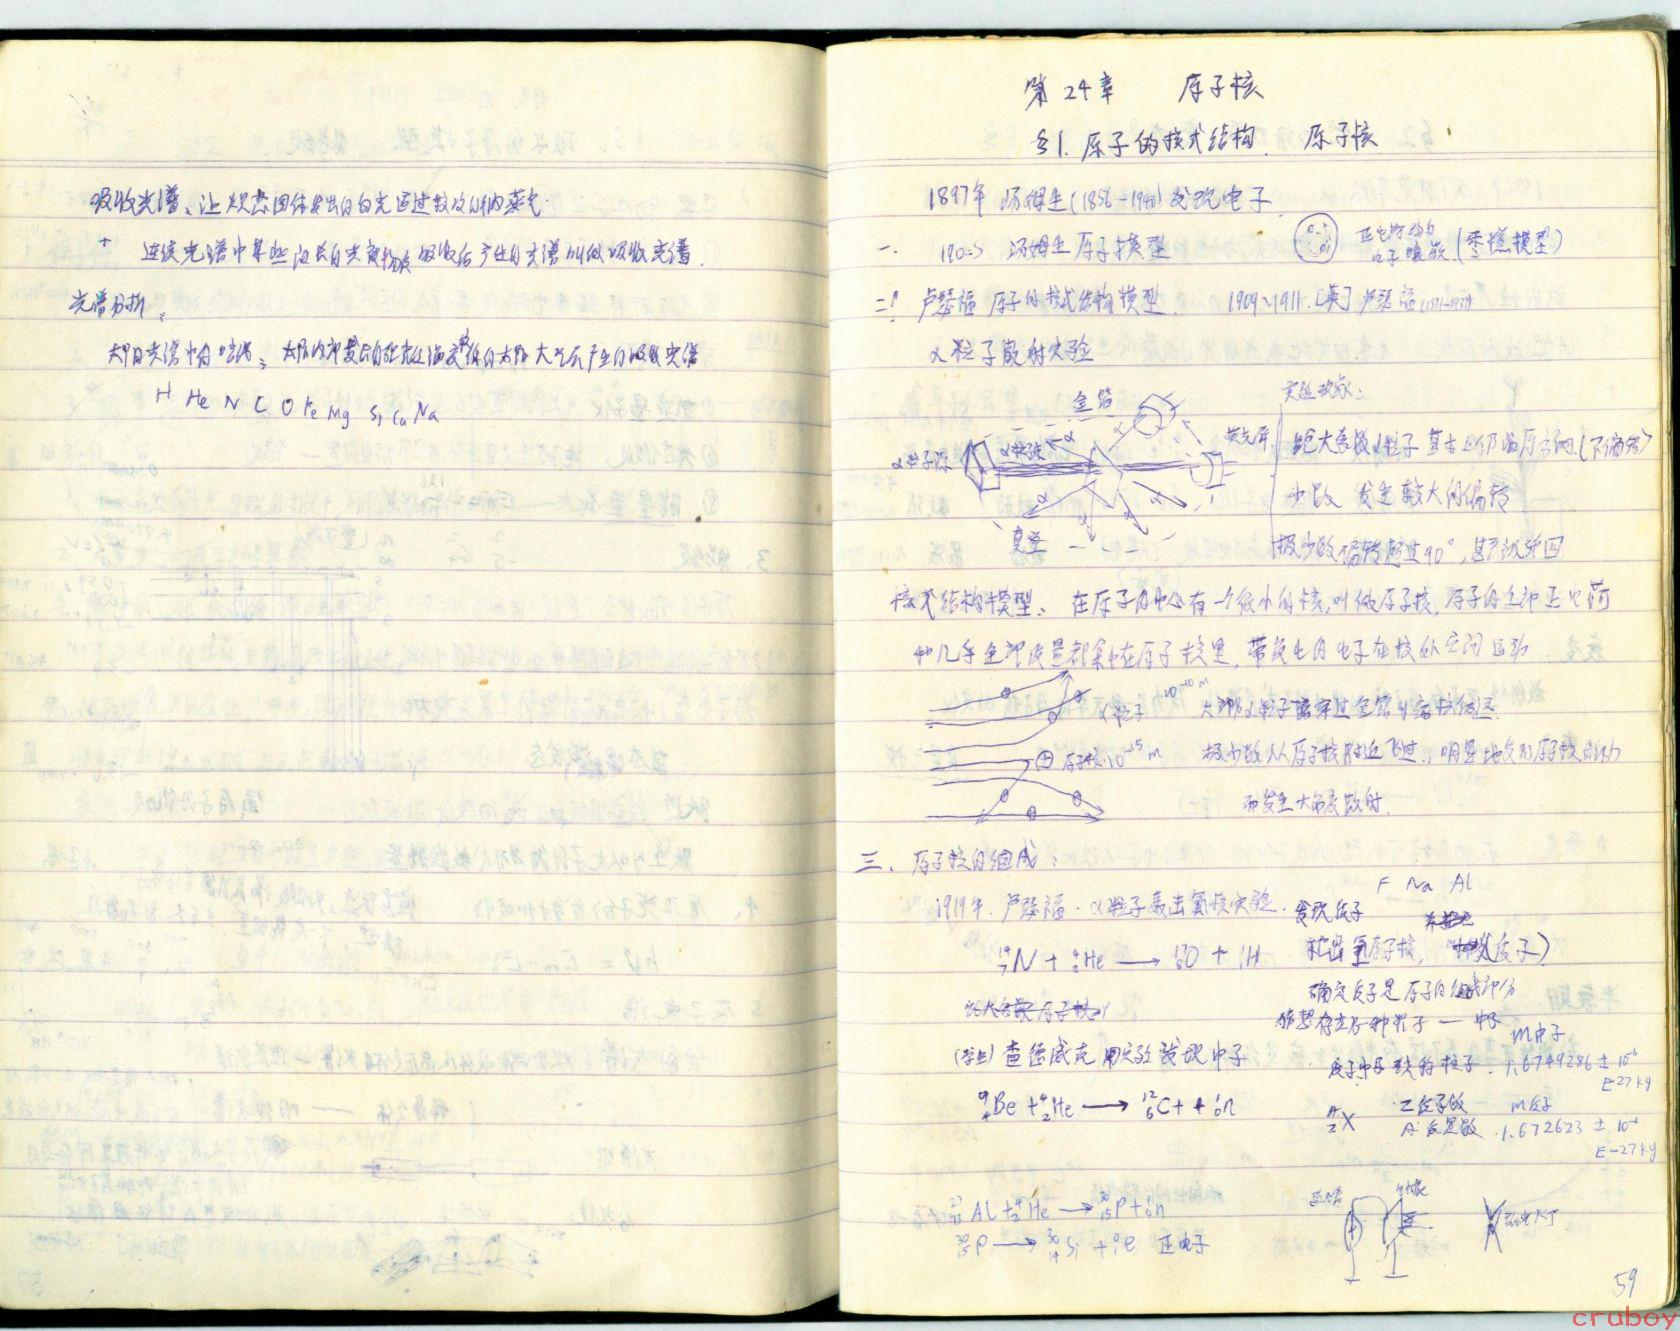 吸收光谱、让炽热固体发出的白光通过较冷的钠蒸气
连续光谱中某些波长的光被物质吸收后产生的光谱叫做吸收光谱.
光谱分析、
太阳光谱中的暗线、太阳内部发出的强光经温度较低的太阳大气层产生的吸收光谱
H He N C O Fe Mg Si Ca Na
第24章 原子核
§1. 原子的核式结构. 原子核
1897年 汤姆生(1856-1940)发现电子.
一. 汤姆生原子模型
电子镶嵌(枣糕模型)
二. 卢瑟福 原子的核式结构模型. 1909~1911.[英]卢瑟福(1871-1937)
α粒子散射实验
实验现象:
金箔
荧光屏
α粒子源
α α α α α
真空
绝大多数α粒子基本上仍沿原方向(不偏转)
少数 发生较大的偏转
极少数偏转超过90°,甚至被弹回
核式结构模型、在原子的中心有一个很小的核,叫做原子核,原子的全部正电荷
和几乎全部质量都集中在原子核里,带负电的电子在核外空间运动
α粒子 10⁻¹⁰m 大部分α粒子穿过金箔时离核很远.
原子核 10⁻¹⁵m 极少数从原子核附近飞过,明显地受到原子核的斥力
而发生大角度散射.
三. 原子核的组成:
F Na Al
1919年. 卢瑟福·α粒子轰击氮核实验. 发现质子
¹⁴₇N + ⁴₂He → ¹⁷₈O + ¹₁H 打出氢原子核, 质子)
确定质子是原子的组成部分
猜想存在另一种粒子 — 中子
(学生)查德威克 用实验发现中子
m中子
1.6749286 ± 10⁻⁶
E-27kg
⁹₄Be + ⁴₂He → ¹²₆C + ¹₀n
ᴬ𝓏X
Z质子数
A质量数
m质子
1.672623 ± 10⁻⁶
E-27kg
²⁷₁₃Al + ⁴₂He → ³⁰₁₅P + ¹₀n
³⁰₁₅P → ³⁰₁₄Si + ⁰₁e 正电子
59
cruboy